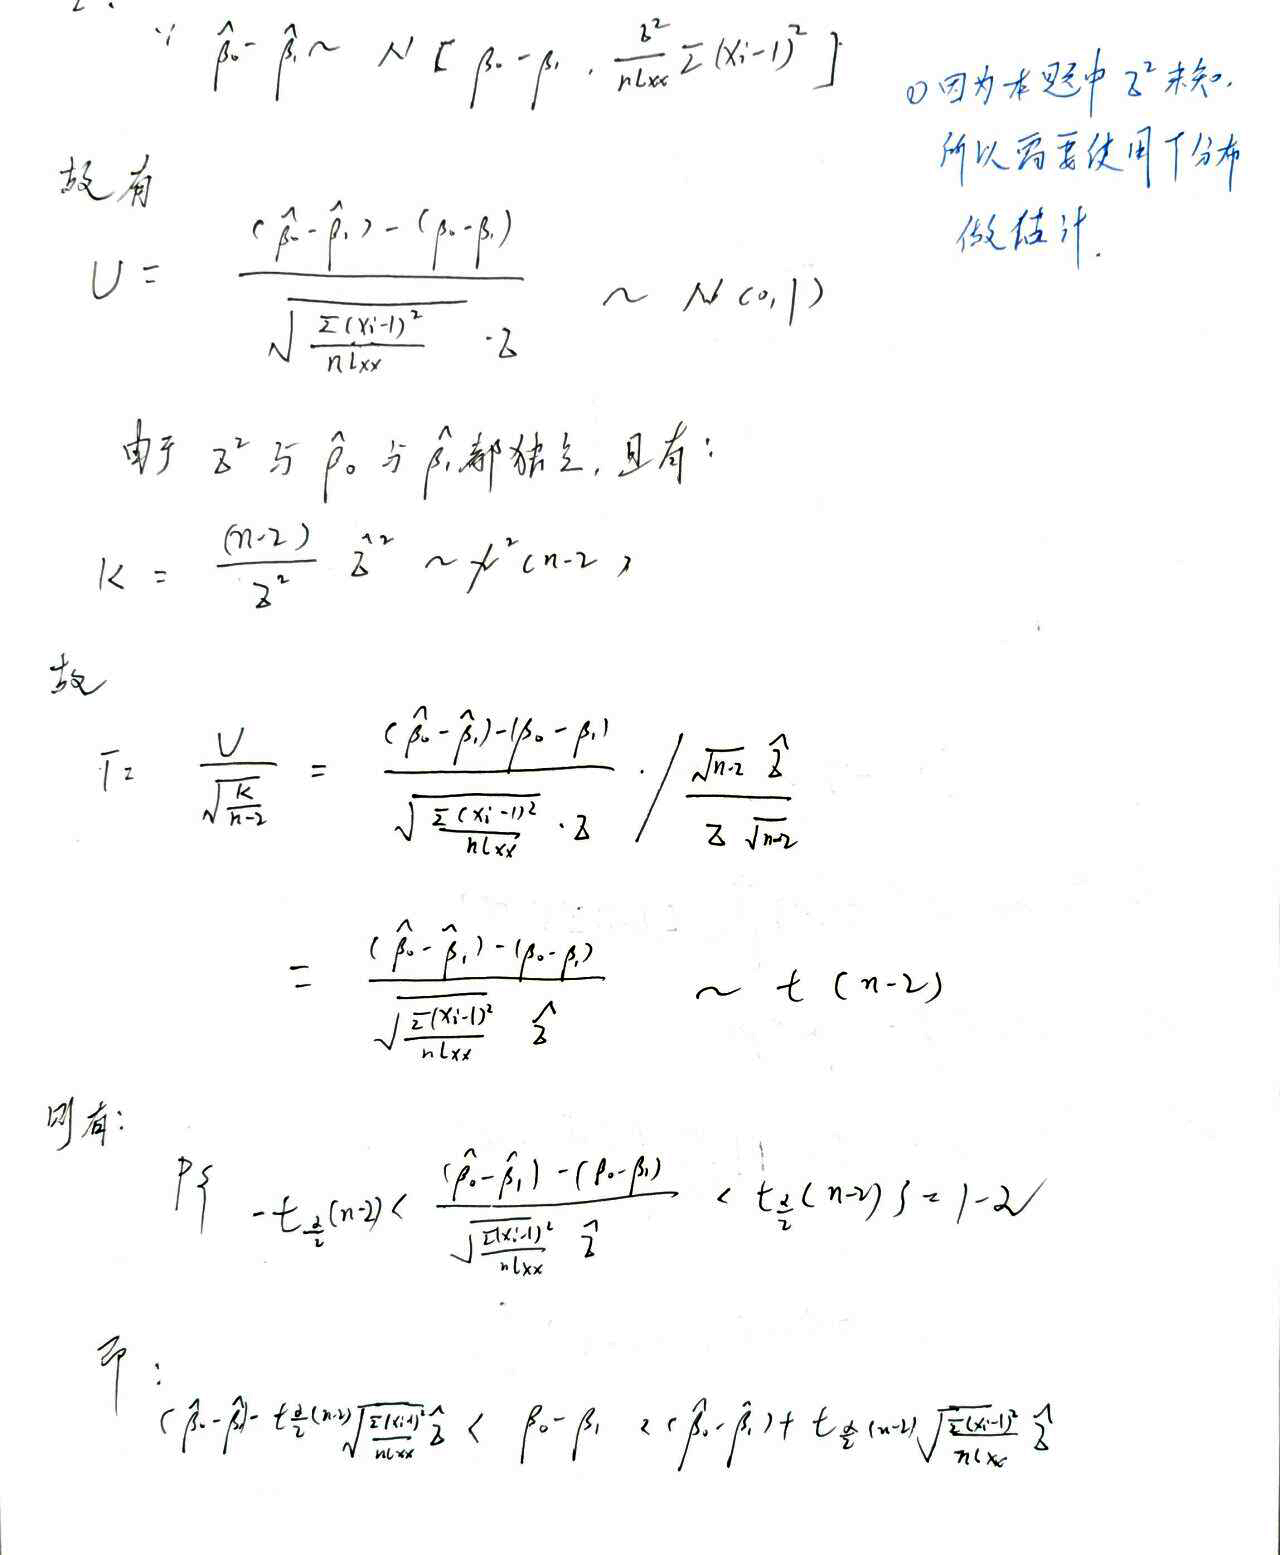 2.
∵ β̂₀ - β̂₁ ~ N [ β₀ - β₁ , σ²/(nlxx) Σ(xi-1)² ]
①因为本题中σ²未知.
所以需要使用T分布
做估计.
故有
U = ((β̂₀ - β̂₁) - (β₀ - β₁)) / (√(Σ(xi-1)²/(nlxx)) · σ) ~ N(0,1)
由于 σ² 与 β̂₀ 与 β̂₁ 都独立, 且有:
K = (n-2)/σ² σ̂² ~ χ²(n-2)
故
T = U/√(K/(n-2)) = ((β̂₀ - β̂₁) - (β₀ - β₁)) / (√(Σ(xi-1)²/(nlxx)) · σ) · / (√(n-2) σ̂)/(σ √(n-2))
= ((β̂₀ - β̂₁) - (β₀ - β₁)) / (√(Σ(xi-1)²/(nlxx)) σ̂) ~ t(n-2)
则有:
P{ -t_{α/2}(n-2) < ((β̂₀ - β̂₁) - (β₀ - β₁)) / (√(Σ(xi-1)²/(nlxx)) σ̂) < t_{α/2}(n-2) } = 1-α
即:
(β̂₀ - β̂₁) - t_{α/2}(n-2) √(Σ(xi-1)²/(nlxx)) σ̂ < β₀ - β₁ < (β̂₀ - β̂₁) + t_{α/2}(n-2) √(Σ(xi-1)²/(nlxx)) σ̂